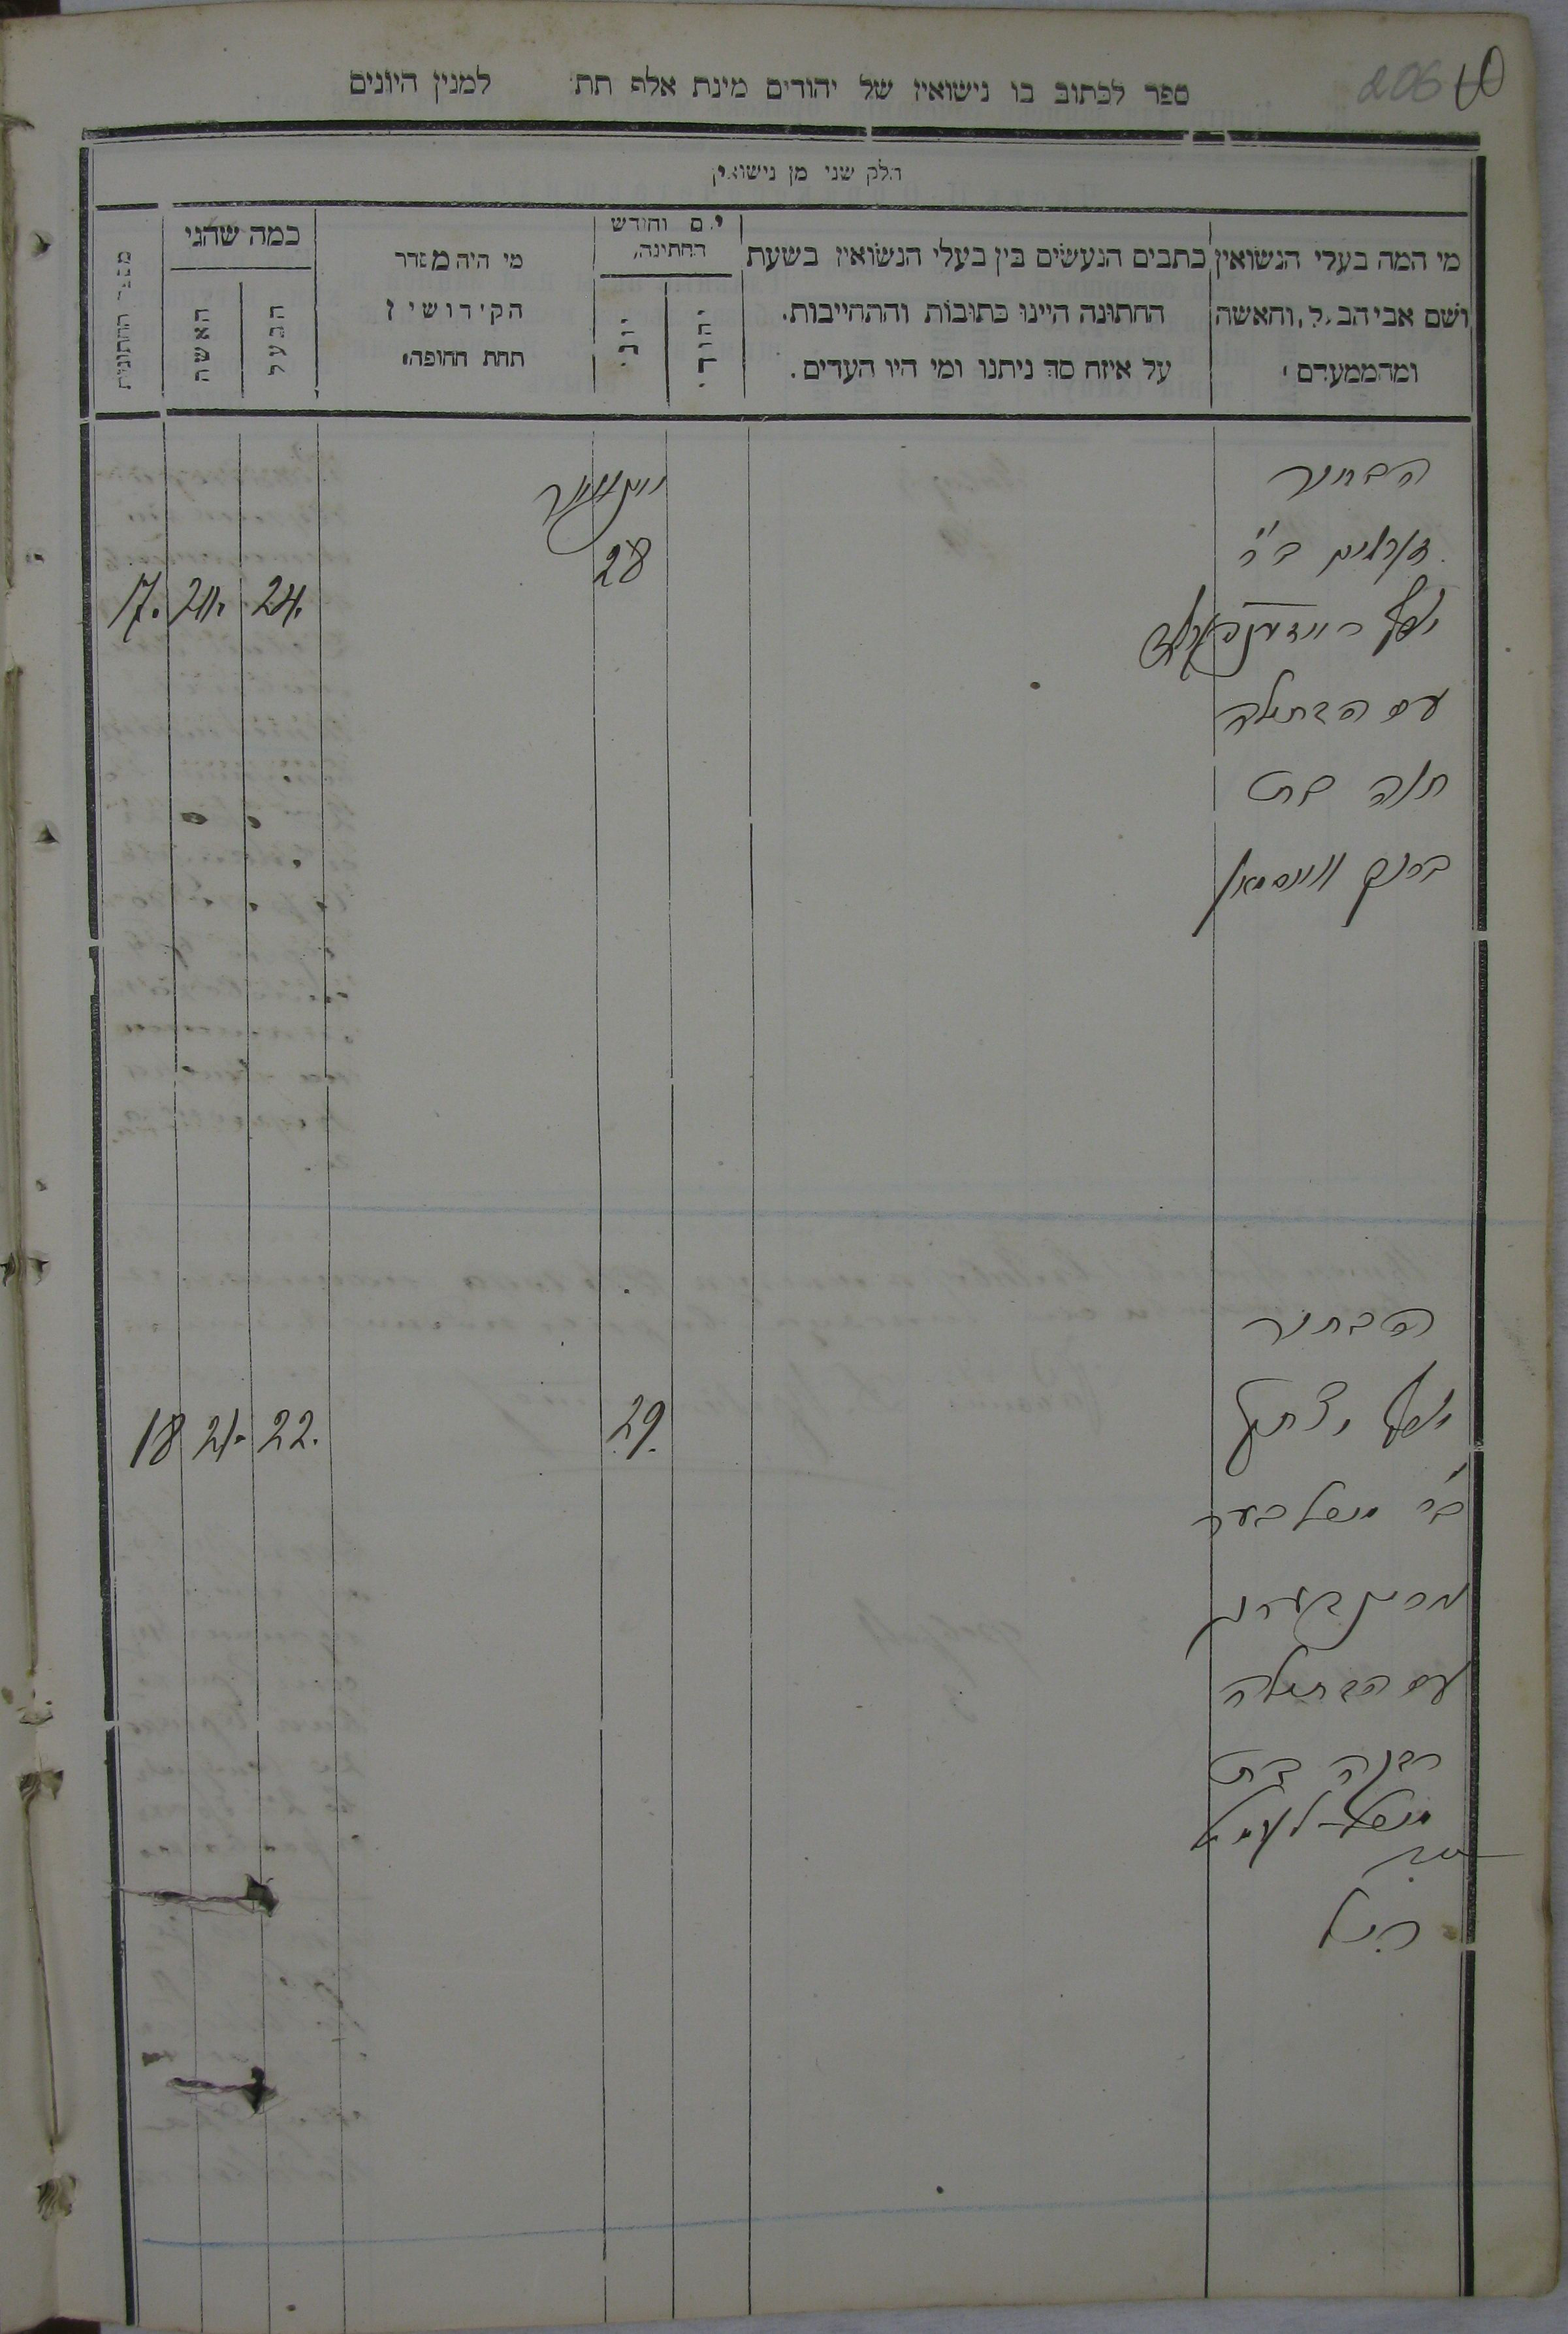 206 10
ספר לכתוב בו נישואין של יהודים מינת אלף תת למנין היונים
חלק שני מן נישואין
מי המה בעלי הנשואין
ושם אביהב על, והאשה
ומהממעדם
כתבים הנעשים בין בעלי הנשואין בשעת
החתונה היינו כתובות והתחייבות.
על איזה סך ניתנו ומי היו העדים.
יום וחודש
החתינה,
יהודי
יוני
מי היה מסדר
הקידושין
תחת החופה
כמה שהגי
הבעל
האשה
מספר החתונות
הבחור
ב"ר
יוסף
עם הבתולה
חנה בת
ברוך ווייסמאן
יאנוואר
28
24.
21.
17.
הבחור
יוסף יצחק
ב"ר
עם הבתולה
בת
29.
22.
21.
18